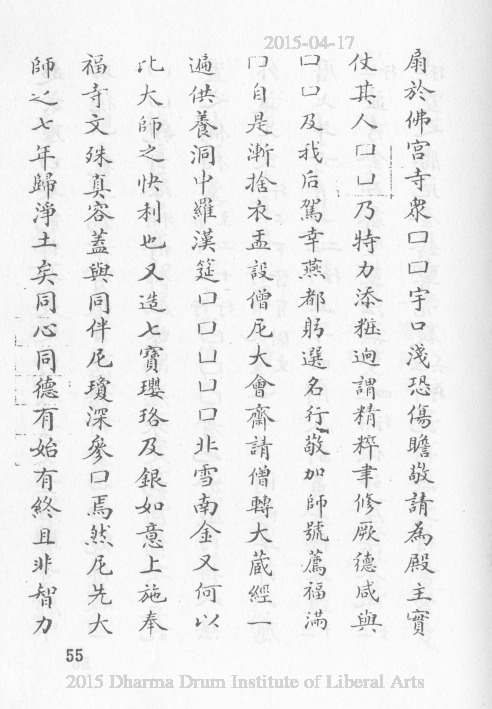 2015-04-17
扇於佛宮寺衆口口宇口淺恐傷瞻敬請為殿主實
仗其人口口乃特力添粧迥謂精粹聿修厥德咸與
口口及我后駕幸燕都躬選名行敬加師號薦福滿
口自是漸捨衣盂設僧尼大會齋請僧轉大蔵經一
遍供養洞中羅漢筵口口口口口北雪南金又何以
比大師之快利也又造七寶瓔珞及銀如意上施奉
福寺文殊真容蓋與同伴尼瓊深參口焉然尼先大
師之七年歸淨土矣同心同德有始有終且非智力
55
2015 Dharma Drum Institute of Liberal Arts